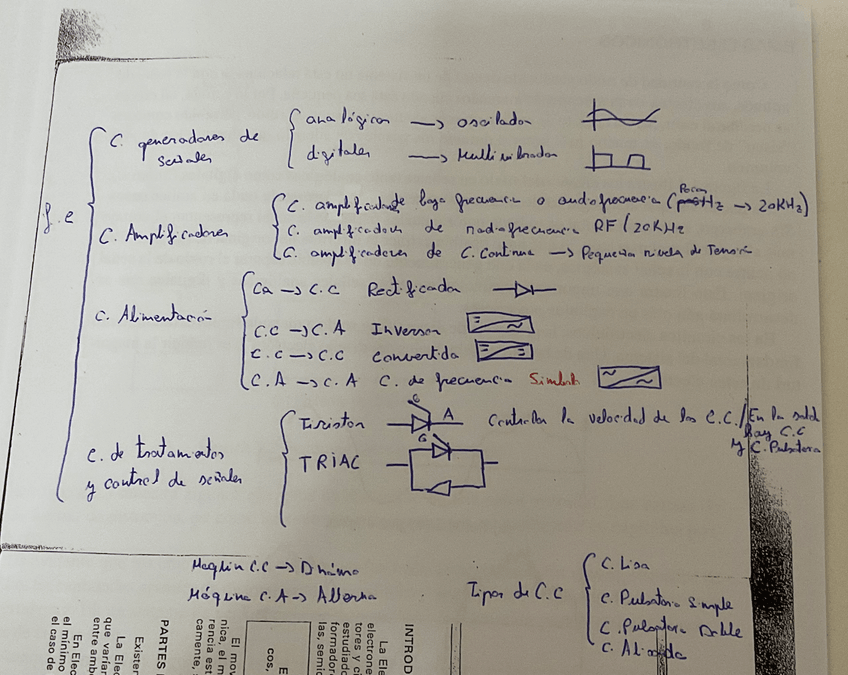 f.e
C. generadores de señales
analógicos → oscilador
digitales → Multivibrador
C. Amplificadores
C. amplificador de baja frecuencia o audiofrecuencia (Pocos Hz → 20KHz)
C. amplificadores de radiofrecuencia RF / 20KHz
C. amplificadores de C. Continua → Pequeños niveles de Tensión
C. Alimentación
Ca → C.C Rectificador
C.C → C.A Inversor
C.C → C.C Convertidor
C.A → C.A C. de frecuencia Simbolo
C. de tratamientos
y control de señales
Tiristor G A Controlar la velocidad de los C.C. / En la salida
hay C.C
y C. Pulsatoria
TRIAC G
Maquin C.C → Dinamo
Máquina C.A → Alterna
Tipos de C.C
C. Lisa
C. Pulsatoria Simple
C. Pulsatoria Doble
INTROD
La Ele
electrone
tores y ci
estudiado
formador
las, semic
cos,
El mov
nica, el m
rencia est
camente,
PARTES
Existen
La Elec
que varían
entre amb
En Elec
el mínimo
el caso de